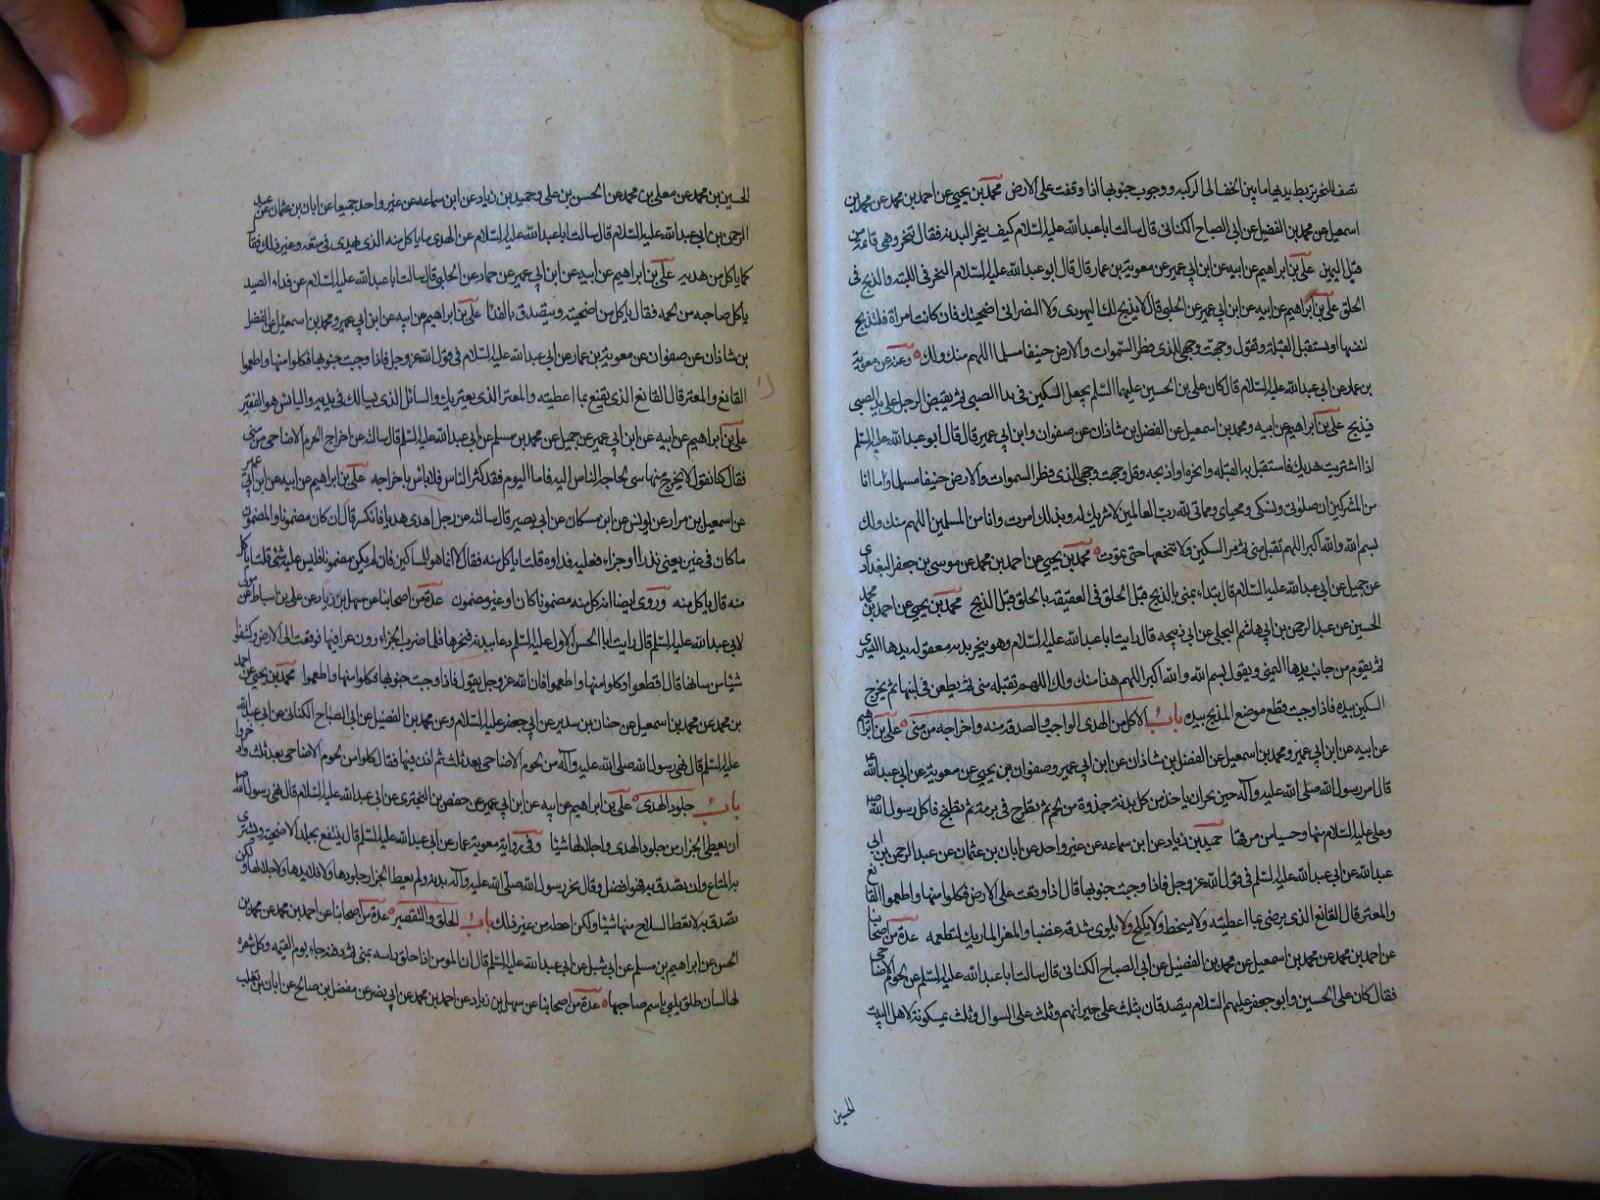 تصف للنحر تربط يديها ما بين الخف الى الركبه ووجوب جنوبها اذا وقعت على الارض محمد بن يحيى عن احمد بن محمد عن محمد بن
اسمعيل عن محمد بن الفضيل عن ابى الصباح الكنانى قال سالت ابا عبد الله عليه السلام كيف ينحر البدنه فقال تنحر وهى قائمة من
قبل اليمين على بن ابراهيم عن ابيه عن ابن ابى عمير عن معوية بن عمار قال قال ابو عبد الله عليه السلام النحر فى اللبته والذبح فى
الحلق على بن ابراهيم عن ابيه عن ابن ابى عمير عن الحلبى قال لا يذبح لك اليهودى ولا النصرانى اضحيتك فان كانت امراة فلتذبح
لنفسها وتستقبل القبلة وتقول وجهت وجهى للذى فطر السموات والارض حنيفا مسلما اللهم منك ولك وعنه عن معوية
بن عمار عن ابى عبد الله عليه السلام قال كان على بن الحسين عليهما السلم يجعل السكين فى يد الصبى ثم يقبض الرجل على يد الصبى
فيذبح على بن ابراهيم عن ابيه ومحمد بن اسمعيل عن الفضل بن شاذان عن صفوان وابن ابى عمير قال قال ابو عبد الله عليه السلم
اذا اشتريت هديك فاستقبل به القبله وانحره او اذبحه وقل وجهت وجهى للذى فطر السموات والارض حنيفا مسلما وما انا
من المشركين ان صلوتى ونسكى ومحياى ومماتى لله رب العالمين لا شريك له وبذلك امرت وانا من المسلمين اللهم منك ولك
بسم الله والله اكبر اللهم تقبل منى ثم مر السكين ولا تنخعها حتى يموت محمد بن يحيى عن احمد بن محمد عن موسى بن جعفر البغدادى
عن جميل عن ابى عبد الله عليه السلام قال تبداء بمنى بالذبح قبل الحلق فى العقيقه بالحلق قبل الذبح محمد بن يحيى عن احمد بن محمد
الحسين عن عبد الرحمن بن ابى هاشم البجلى عن ابى خديجه قال رايت ابا عبد الله عليه السلام وهو ينحر بدنه معقوله يدها اليسرى
ثم يقوم من جانب يدها اليمنى ويقول بسم الله والله اكبر اللهم هذا منك ولك اللهم تقبله منى ثم يطعن فى لبتها ثم يخرج
السكين بيده فاذا وجبت قطع موضع المذبح بيده باب الاكل من الهدى الواجب والصدقه منه واخراجه من منى على بن ابراهيم
عن ابيه عن ابن ابى عمير ومحمد بن اسمعيل عن الفضل بن شاذان عن ابن ابى عمير وصفوان بن يحيى عن معوية عن ابى عبد الله ع
قال امر رسول الله صلى الله عليه وآله حين نحر ان ياخذ من كل بدنة جذوة من لحم ثم تطرح فى برمة ثم تطبخ فاكل رسول الله ص
وعلى عليه السلام منها وحسيا من مرقها حميد بن زياد عن ابن سماعه عن غير واحد عن ابان بن عثمان عن عبد الرحمن بن ابى
عبد الله عن ابى عبد الله عليه السلم فى قول الله عز وجل فاذا وجبت جنوبها قال اذا وقعت على الارض فكلوا منها واطعموا القانع
والمعتر قال القانع الذى يرضى بما اعطيته ولا يسخط ولا يكلح ولا يلوى شدقه غضبا والمعتر المار بك لتطعمه عدة من اصحابنا
عن احمد بن محمد عن محمد بن اسمعيل عن محمد بن الفضيل عن ابى الصباح الكنانى قال سالت ابا عبد الله عليه السلم عن لحوم الاضاحى
فقال كان على الحسين وابو جعفر عليهم السلام يتصدقان بثلث على جيرانهم وثلث على السوال وثلث يمسكونه لاهل البيت
الحسين
الحسين بن محمد عن معلى بن محمد عن الحسن بن على وحميد بن زياد عن ابن سماعه عن غير واحد جميعا عن ابان بن عثمان عن عبد
الرحمن بن ابى عبد الله عليه السلام قال سالت ابا عبد الله عليه السلام عن الهدى ما ياكل منه الذى يهدى فى متعه وغير ذلك فقال
كما ياكل من هديه على بن ابراهيم عن ابيه عن ابن ابى عمير عن حماد عن الحلبى قال سالت ابا عبد الله عليه السلام عن فداء الصيد
ياكل صاحبه من لحمه فقال ياكل من اضحيته ويتصدق بالفدا على بن ابراهيم عن ابيه عن ابن ابى عمير ومحمد بن اسمعيل عن الفضل
بن شاذان عن صفوان عن معوية بن عمار عن ابى عبد الله عليه السلام فى قول الله عز وجل فاذا وجبت جنوبها فكلوا منها واطعموا
القانع والمعتر قال القانع الذى يقنع بما اعطيته والمعتر الذى يعتريك والسائل الذى يسالك فى يديه والبائس هو الفقير
على بن ابراهيم عن ابيه عن ابن ابى عمير عن جميل عن محمد بن مسلم عن ابى عبد الله عليه السلم قال سالته عن اخراج لحوم الاضاحى من منى
فقال كنا نقول لا يخرج منها شى لحاجة الناس اليه فاما اليوم فقد كثر الناس فلا باس باخراجه على بن ابراهيم عن ابيه عن ابن ابى عمير
عن اسمعيل بن مرار عن يونس عن ابن مسكان عن ابى بصير قال سالته عن رجل اهدى هديا فانكسر قال ان كان مضمونا والمضمون
ما كان فى يمين يعنى نذرا او جزاء فعليه فداوه قلت اياكل منه فقال لا انما هو للمساكين فان لم يكن مضمونا فليس عليه شى قلت اياكل
منه قال ياكل منه وروى ايضا انه ياكل منه مضمونا كان او غير مضمون عدة من اصحابنا عن سهل بن زياد عن على بن اسباط عن مولى
لابى عبد الله عليه السلم قال رايت ابا الحسن الاول عليه السلم دعا ببدنه فنحرها فلما ضرب الجزارون عراقيبها فوقعت الى الارض وكشفوا
شيئا من سنامها قال اقطعوا وكلوا منها واطعموا فان الله عز وجل يقول فاذا وجبت جنوبها فكلوا منها واطعموا محمد بن يحيى عن احمد
بن محمد عن محمد بن اسمعيل عن حنان بن سدير عن ابى جعفر عليه السلام وعن محمد بن الفضيل عن ابى الصباح الكنانى عن ابى عبد الله
عليه السلم قال نهى رسول الله صلى الله عليه وآله عن لحوم الاضاحى بعد ثلث ثم اذن فيها فقال كلوا من لحوم الاضاحى بعد ثلث وادخروا
باب جلود الهدى على بن ابراهيم عن ابيه عن ابن ابى عمير عن حفص بن البخترى عن ابى عبد الله عليه السلام قال نهى رسول الله ص
ان يعطى الجزار من جلود الهدى واجلالها شيئا وفى رواية معوية بن عمار عن ابى عبد الله عليه السلم قال ينتفع بجلد الاضحية ويشترى
به المتاع وان تصدق به فهو افضل وقال نحر رسول الله صلى الله عليه وآله بدنه ولم يعط الجزار جلودها ولا قلايدها ولا جلالها ولكن
تصدق به ولا تعط السلاخ منها شيئا ولكن اعطه من غير ذلك باب الحلق والتقصير عدة من اصحابنا عن احمد بن محمد عن محمد بن
الحسن عن ابراهيم بن مسلم عن ابى شبل عن ابى عبد الله عليه السلم قال ان المومن اذا حلق راسه بمنى ثم دفنه جاء يوم القيمه وكل شعره
لها لسان طلق يلبى باسم صاحبها عدة من اصحابنا عن سهل بن زياد عن احمد بن محمد عن ابى نصر عن مفضل بن صالح عن ابان بن تغلب